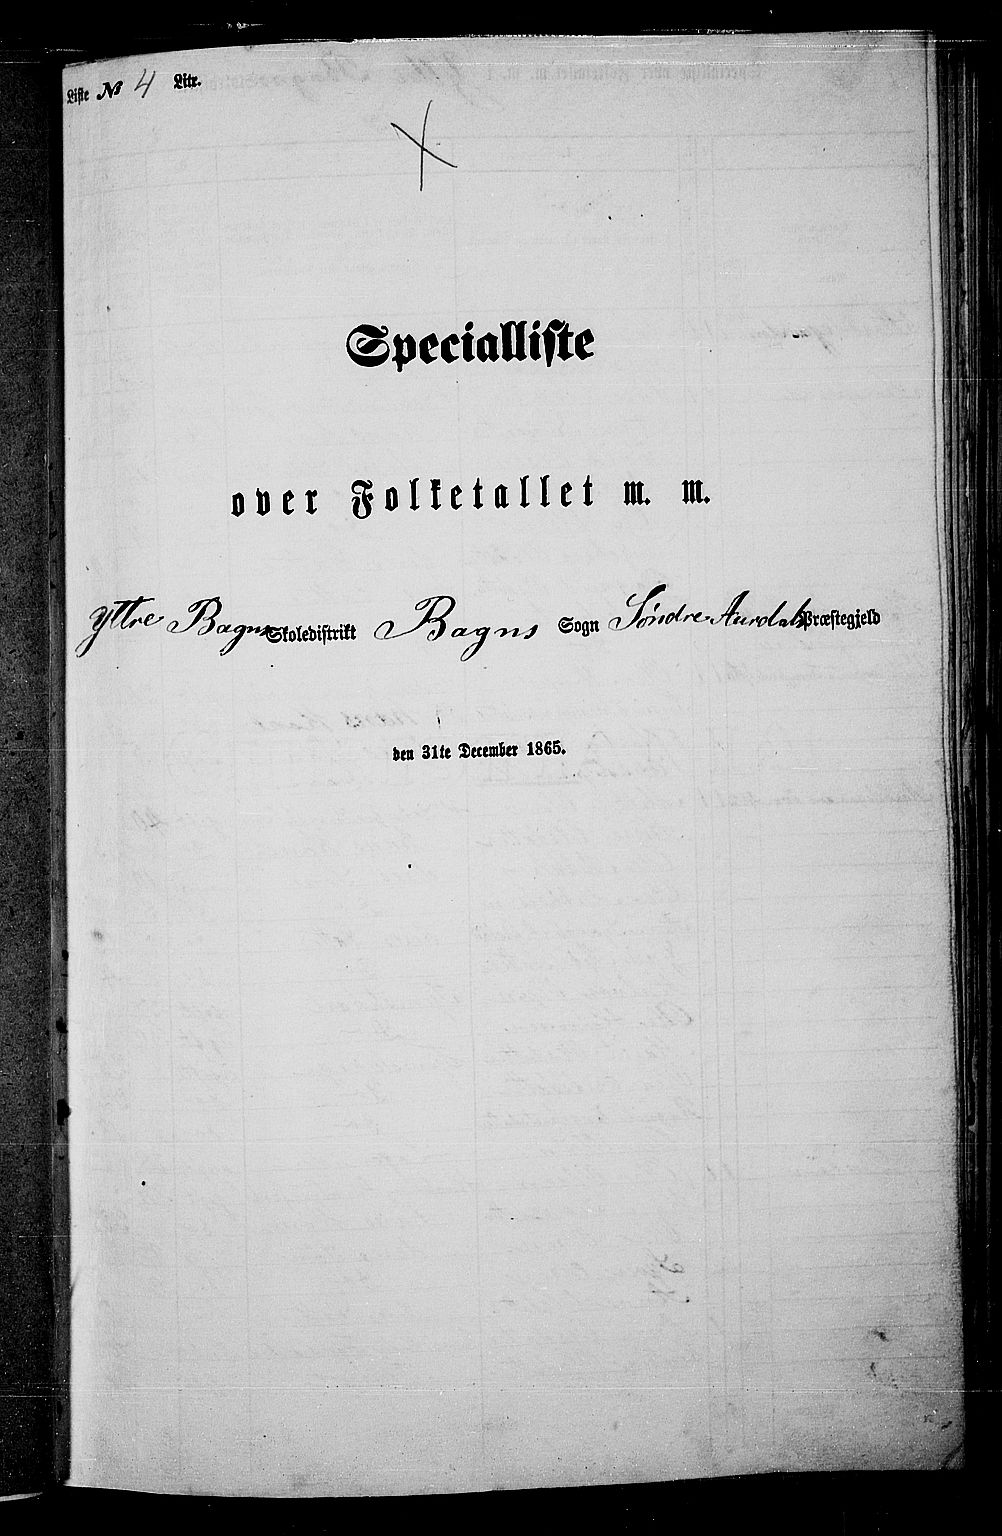 Liste № 4 Litr.
Specialliste
over Folketallet m. m.
Yttre Bagns Skoledistrikt Bagns Sogn Søndre Aurdals Præstegjeld
den 31te December 1865.